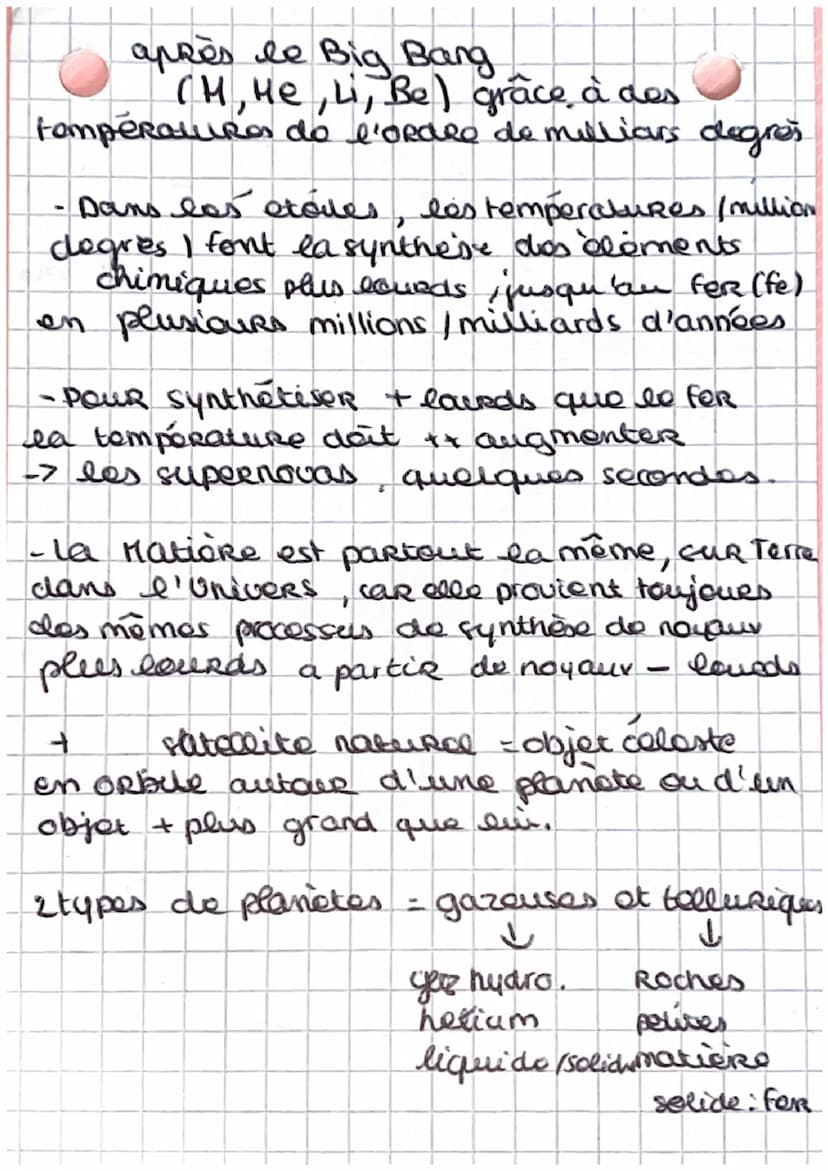 après le Big Bang
(H, He, Li, Be) grâce à des
températures de l'ordre de milliars degrés
- Dans les etoiles, les températures (million
degrès) font la synthèse des éléments
chimiques plus lourds, jusqu'au fer (fe)
en plusieurs millions / milliards d'années
- pour synthétiser + lourds que le fer
la température doit ++ augmenter
-> les supernovas, quelques secondes.
- la Matière est partout la même, sur Terre
dans l'Univers, car elle provient toujours
des mêmes processus de synthèse de noyaux
plus lourds a partir de noyaux - lourds
+ satellite naturel = objet céleste
en orbite autour d'une planète ou d'un
objet + plus grand que lui.
2 types de planètes = gazeuses et telluriques
↓ ↓
gaz hydro. Roches
helium petites
liquide/solide matière
solide : fer